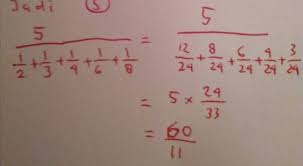 Jadi (5)
5 / (1/2 + 1/3 + 1/4 + 1/6 + 1/8) = 5 / (12/24 + 8/24 + 6/24 + 4/24 + 3/24)
= 5 × 24/33
= 60/11